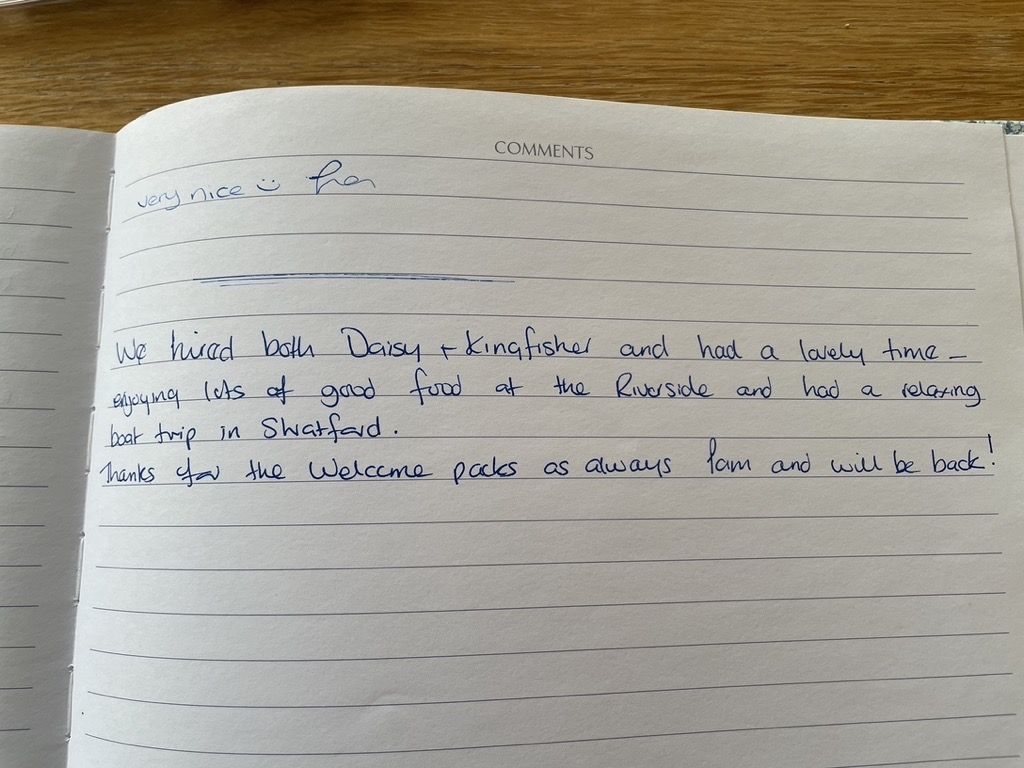 COMMENTS
very nice :) fran
We hired both Daisy + Kingfisher and had a lovely time -
enjoying lots of good food at the Riverside and had a relaxing
boat trip in Stratford.
Thanks for the Welcome packs as always Pam and will be back!